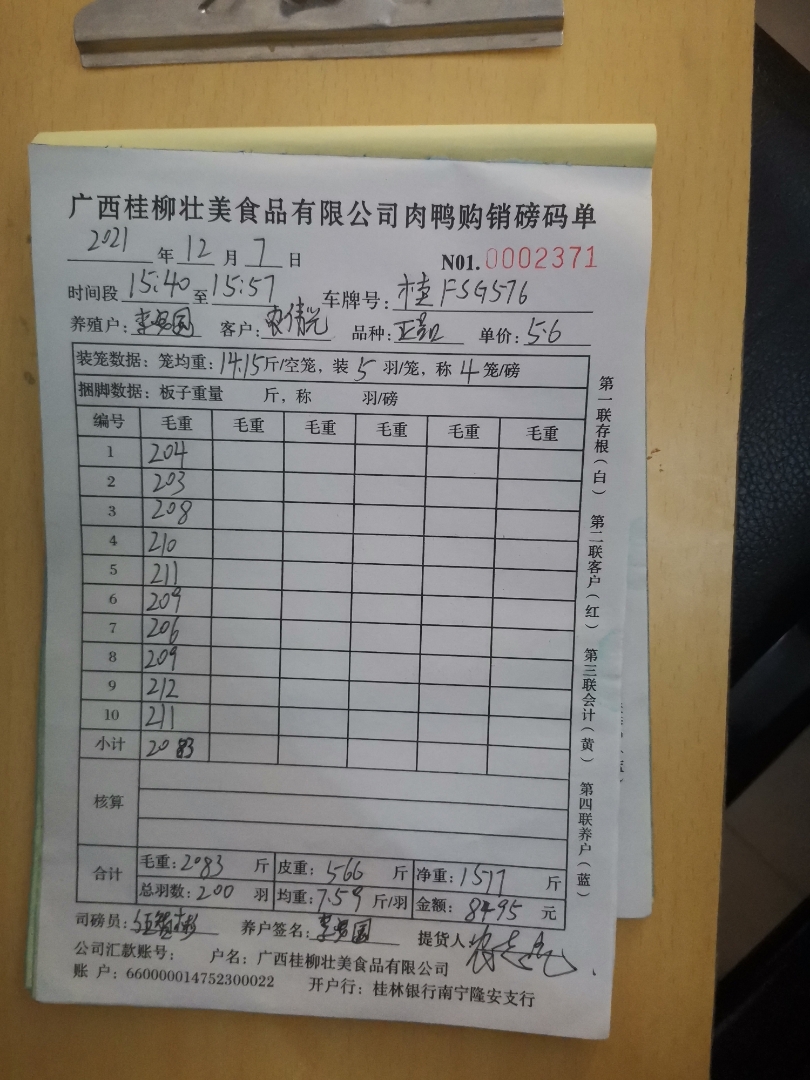 广西桂柳壮美食品有限公司肉鸭购销磅码单
2021 年 12 月 7 日 N01.0002371
时间段 15:40 至 15:57 车牌号: 桂FSG576
养殖户: 客户: 品种: 单价: 5.6
装笼数据: 笼均重: 14.15 斤/空笼, 装 5 羽/笼, 称 4 笼/磅
捆脚数据: 板子重量 斤, 称 羽/磅
编号 毛重 毛重 毛重 毛重 毛重 毛重
1 204
2 203
3 208
4 210
5 211
6 209
7 206
8 209
9 212
10 211
小计 2083
核算
合计 毛重: 2083 斤 皮重: 566 斤 净重: 1517 斤
总羽数: 200 羽 均重: 7.59 斤/羽 金额: 8495 元
司磅员: 养户签名: 提货人
公司汇款账号: 户名: 广西桂柳壮美食品有限公司
账 户: 660000014752300022 开户行: 桂林银行南宁隆安支行
第一联存根(白) 第二联客户(红) 第三联会计(黄) 第四联养户(蓝)